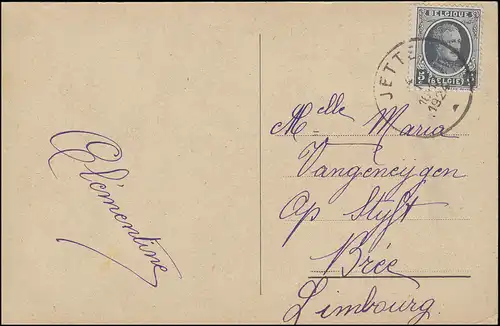 Clémentine
BELGIQUE
5 5
BELGIË
JETT
1924
Melle Maria
Vangeneygen
Op Styft
Brée
Limbourg.